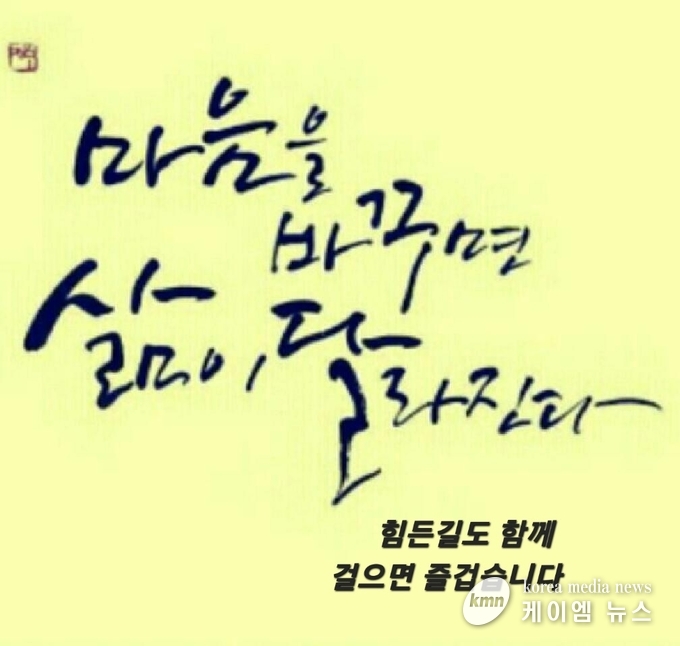 마음을
바꾸면
삶이, 달라진다
힘든길도 함께
걸으면 즐겁습니다
kmn korea media news
케이엠 뉴스